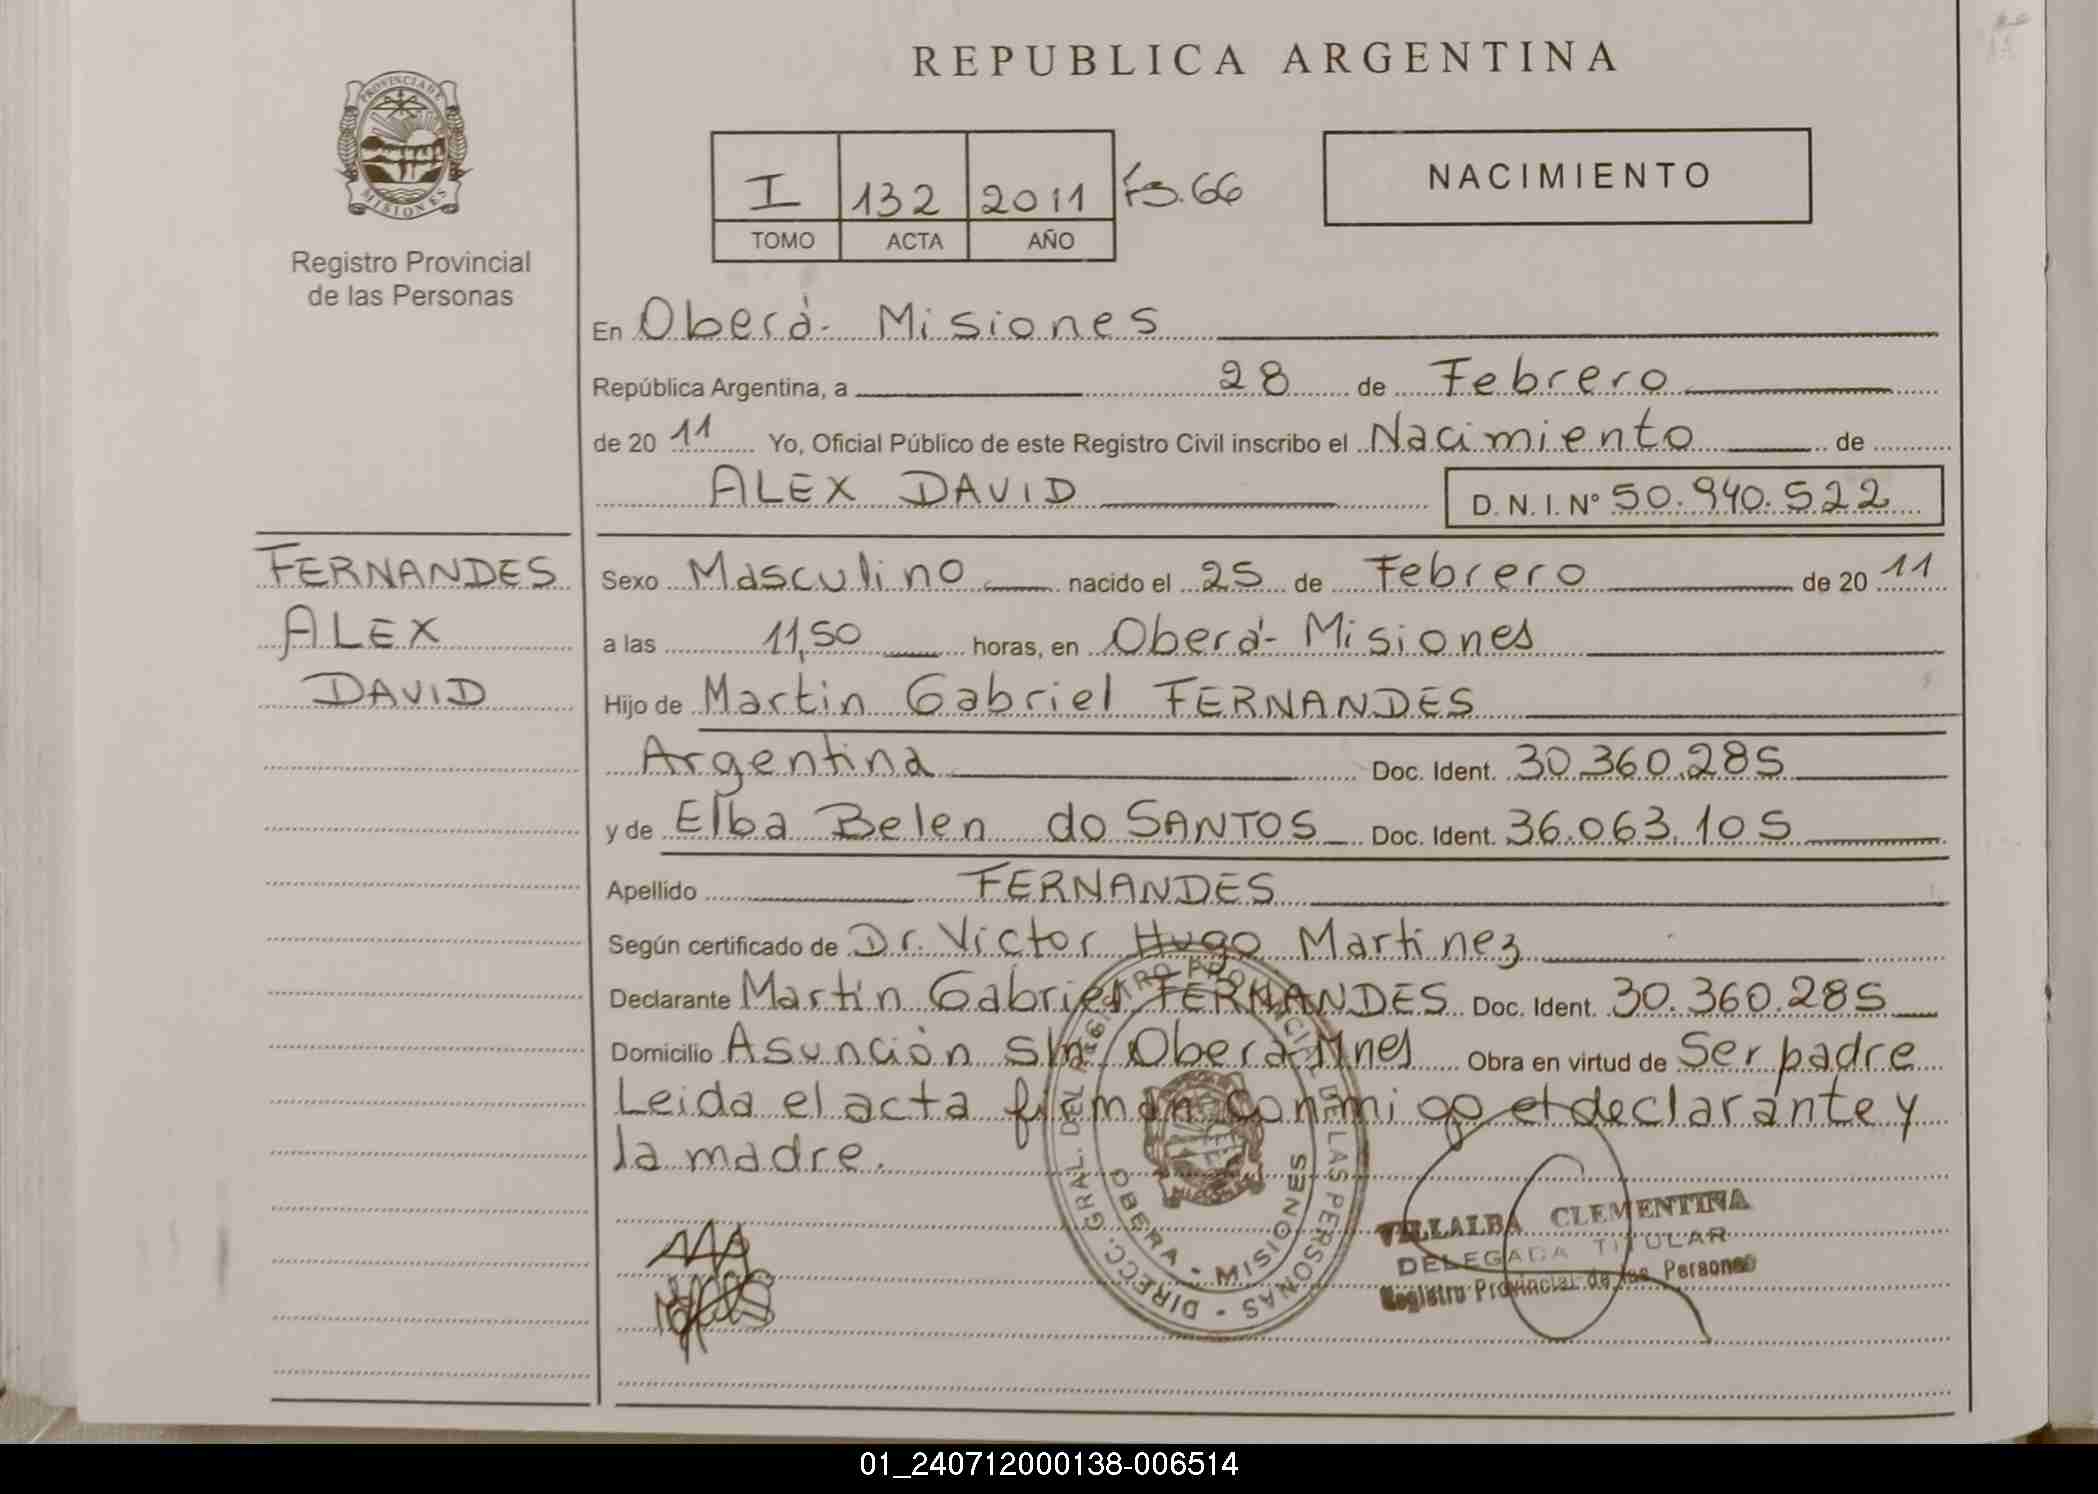 REPUBLICA ARGENTINA
PROVINCIA DE MISIONES
Registro Provincial
de las Personas
I 132 2011 Fs. 66
TOMO ACTA AÑO
NACIMIENTO
En Oberá - Misiones
República Argentina, a 28 de Febrero
de 20 11 Yo, Oficial Público de este Registro Civil inscribo el Nacimiento de
ALEX DAVID D. N. I. Nº 50.940.522
FERNANDES
ALEX
DAVID
Sexo Masculino nacido el 25 de Febrero de 20 11
a las 11,50 horas, en Oberá - Misiones
Hijo de Martin Gabriel FERNANDES
Argentina Doc. Ident. 30.360.285
y de Elba Belen do SANTOS Doc. Ident. 36.063.105
Apellido FERNANDES
Según certificado de Dr. Victor Hugo Martinez
Declarante Martín Gabriel FERNANDES Doc. Ident. 30.360.285
Domicilio Asunción s/n Oberá Mnes Obra en virtud de Ser padre
Leida el acta firman conmigo el declarante y
la madre.
DIRECC. GRAL. DEL REGISTRO PROVINCIAL DE LAS PERSONAS
OBERA - MISIONES
VILLALBA CLEMENTINA
DELEGADA TITULAR
Registro Provincial de las Personas
01_240712000138-006514